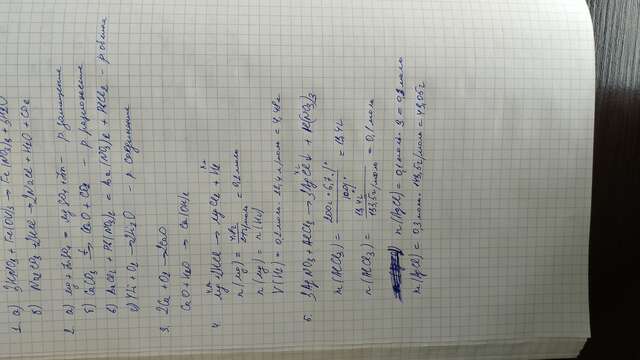 1. а) 3HNO3 + Fe(OH)3 → Fe(NO3)3 + 3H2O
б) Na2CO3 + 2HCl → 2NaCl + H2O + CO2
2. а) Mg + ZnSO4 = MgSO4 + Zn - р. замещение
б) CaCO3 → CaO + CO2 - р. разложение
в) BaCl2 + Pb(NO3)2 = Ba(NO3)2 + PbCl2 - р. обмена
г) H2 + O2 → 2H2O - р. соединение
3. 2Ca + O2 → 2CaO
CaO + H2O → Ca(OH)2
4. Mg + 2HCl → MgCl2 + H2
n(Mg) = = 0,2 моль
n(Mg) = n(H2)
V(H2) = 0,2 моль · 22,4 л/моль = 4,48 л
5. 3AgNO3 + AlCl3 → 3AgCl↓ + Al(NO3)3
m(AlCl3) = 200г · 6,7% / 100% = 13,4г
n(AlCl3) = 13,4г / 133,5г/моль = 0,1 моль
n(AgCl) = 0,1 моль · 3 = 0,3 моль
m(AgCl) = 0,3 моль · 143,5г/моль = 43,05г